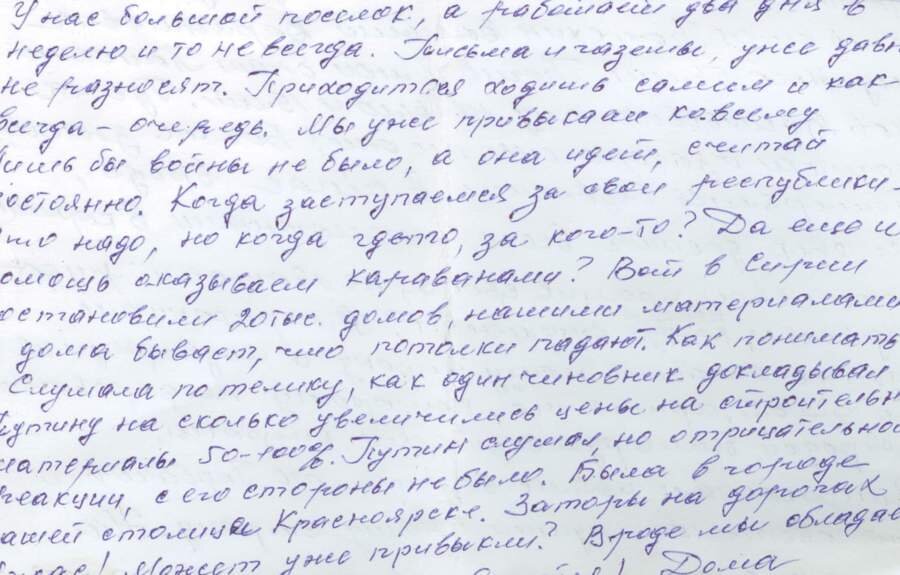 У нас большой поселок, а работаем два дня в
неделю и то не всегда. Письма и газеты, уже давн
не разносят. Приходится ходить самим и как-
всегда - очередь. Мы уже привыкаем ко всему
лишь бы войны не было, а она идет, считай
остоянно. Когда заступаемся за свои республики -
это надо, но когда где-то, за кого-то? Да еще и
омощь оказываем караванами? Вот в Сирии
остановили 20 тыс. домов, нашими материалами
дома бывает, что потолки падают. Как понимать
Слушала по телику, как один чиновник докладывал
Путину на сколько увеличились цены на строительн
материалы 50-100%. Путин слушал, но отрицательно
реакции, с его стороны не было. Была в городе
ашей столице Красноярске. Заторы на дорогах
Может уже привыкли? Вроде мы облада
Дома